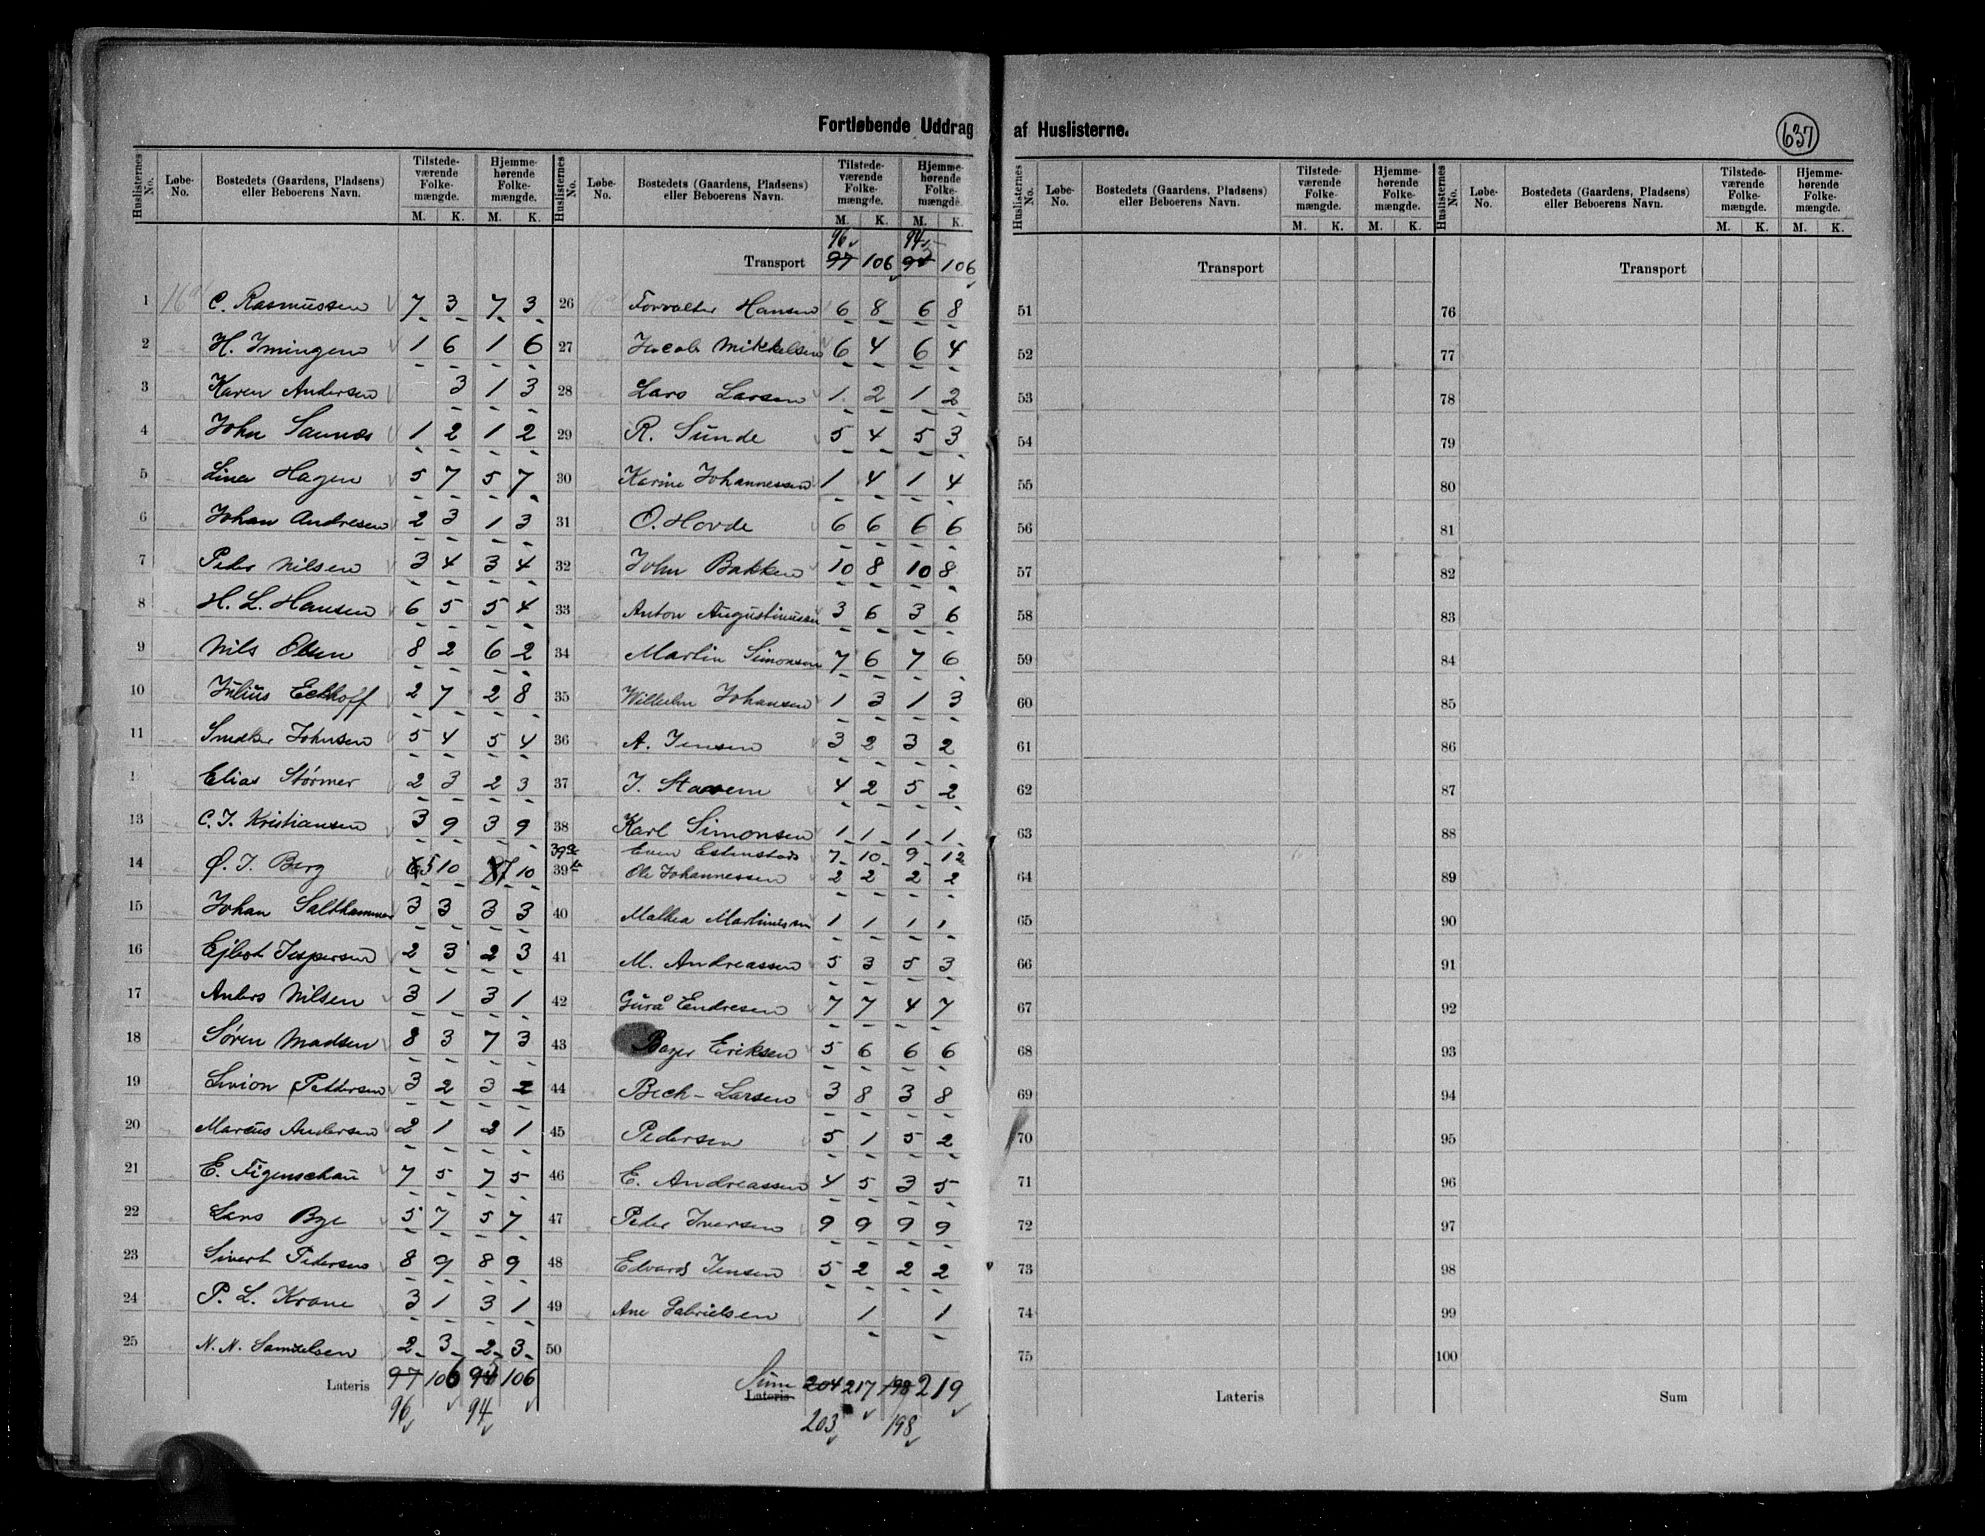 Fortløbende Uddrag af Huslisterne.
637
Huslisternes No. Løbe-No. Bostedets (Gaardens, Pladsens) eller Beboerens Navn. Tilstedeværende Folkemængde. M. K. Hjemmehørende Folkemængde. M. K.
1 16a C. Rasmussen 7 3 7 3
2 H. Imingen 1 6 1 6
3 Karen Andersen 3 1 3
4 John Sannes 1 2 1 2
5 Lina Hagen 5 7 5 7
6 Johan Andresen 2 3 1 3
7 Peder Nilsen 3 4 3 4
8 H. L. Hansen 6 5 5 4
9 Nils Olsen 8 2 6 2
10 Julius Eckhoff 2 7 2 8
11 Johnsen 5 4 5 4
Elias Størmer 2 3 2 3
13 C. J. Kristiansen 3 9 3 9
14 Ø. J. Berg 5 10 7 10
15 Johan Salthammer 3 3 3 3
16 Ejlert Jespersen 2 3 2 3
17 Anders Nilsen 3 1 3 1
18 Søren Madsen 8 3 7 3
19 Sivion Pettersen 3 2 3 2
20 Marcus Andersen 2 1 2 1
21 E. Figenschau 7 5 7 5
22 Lars Bye 5 7 5 7
23 Sivert Pedersen 8 9 8 9
24 P. L. Krane 3 1 3 1
25 N. N. Samuelsen 2 3 2 3
Lateris 97 106 106
96 94
Huslisternes No. Løbe-No. Bostedets (Gaardens, Pladsens) eller Beboerens Navn. Tilstedeværende Folkemængde. M. K. Hjemmehørende Folkemængde. M. K.
96 94
Transport 97 106 106
26 Forvalter Hansen 6 8 6 8
27 Jacob Mikkelsen 6 4 6 4
28 Lars Larsen 1 2 1 2
29 R. Sunde 5 4 5 3
30 Karine Johannessen 1 4 1 4
31 O. Hovde 6 6 6 6
32 John Bakken 10 8 10 8
33 Anton Augustinussen 3 6 3 6
34 Martin Simonsen 7 6 7 6
35 Wilhelm Johansen 1 3 1 3
36 A. Jensen 3 2 3 2
37 J. Stavem 4 2 5 2
38 Karl Simonsen 1 1 1 1
39 Even Estenstad 7 10 9 12
39 Ole Johannessen 2 2 2 2
40 Malkea Martinussen 1 1 1 1
41 M. Andreassen 5 3 5 3
42 Gurå Endresen 7 7 4 7
43 Eriksen 5 6 6 6
44 Bech-Larsen 3 8 3 8
45 Pedersen 5 1 5 2
46 E. Andreassen 4 5 3 5
47 Peder Iversen 9 9 9 9
48 Edvard Jensen 5 2 2 2
49 Ane Gabrielsen 1 1
50
Sum Lateris 204 217 198 219
203 198
Huslisternes No. Løbe-No. Bostedets (Gaardens, Pladsens) eller Beboerens Navn. Tilstedeværende Folkemængde. M. K. Hjemmehørende Folkemængde. M. K.
Transport
51
52
53
54
55
56
57
58
59
60
61
62
63
64
65
66
67
68
69
70
71
72
73
74
75
Lateris
Huslisternes No. Løbe-No. Bostedets (Gaardens, Pladsens) eller Beboerens Navn. Tilstedeværende Folkemængde. M. K. Hjemmehørende Folkemængde. M. K.
Transport
76
77
78
79
80
81
82
83
84
85
86
87
88
89
90
91
92
93
94
95
96
97
98
99
100
Sum